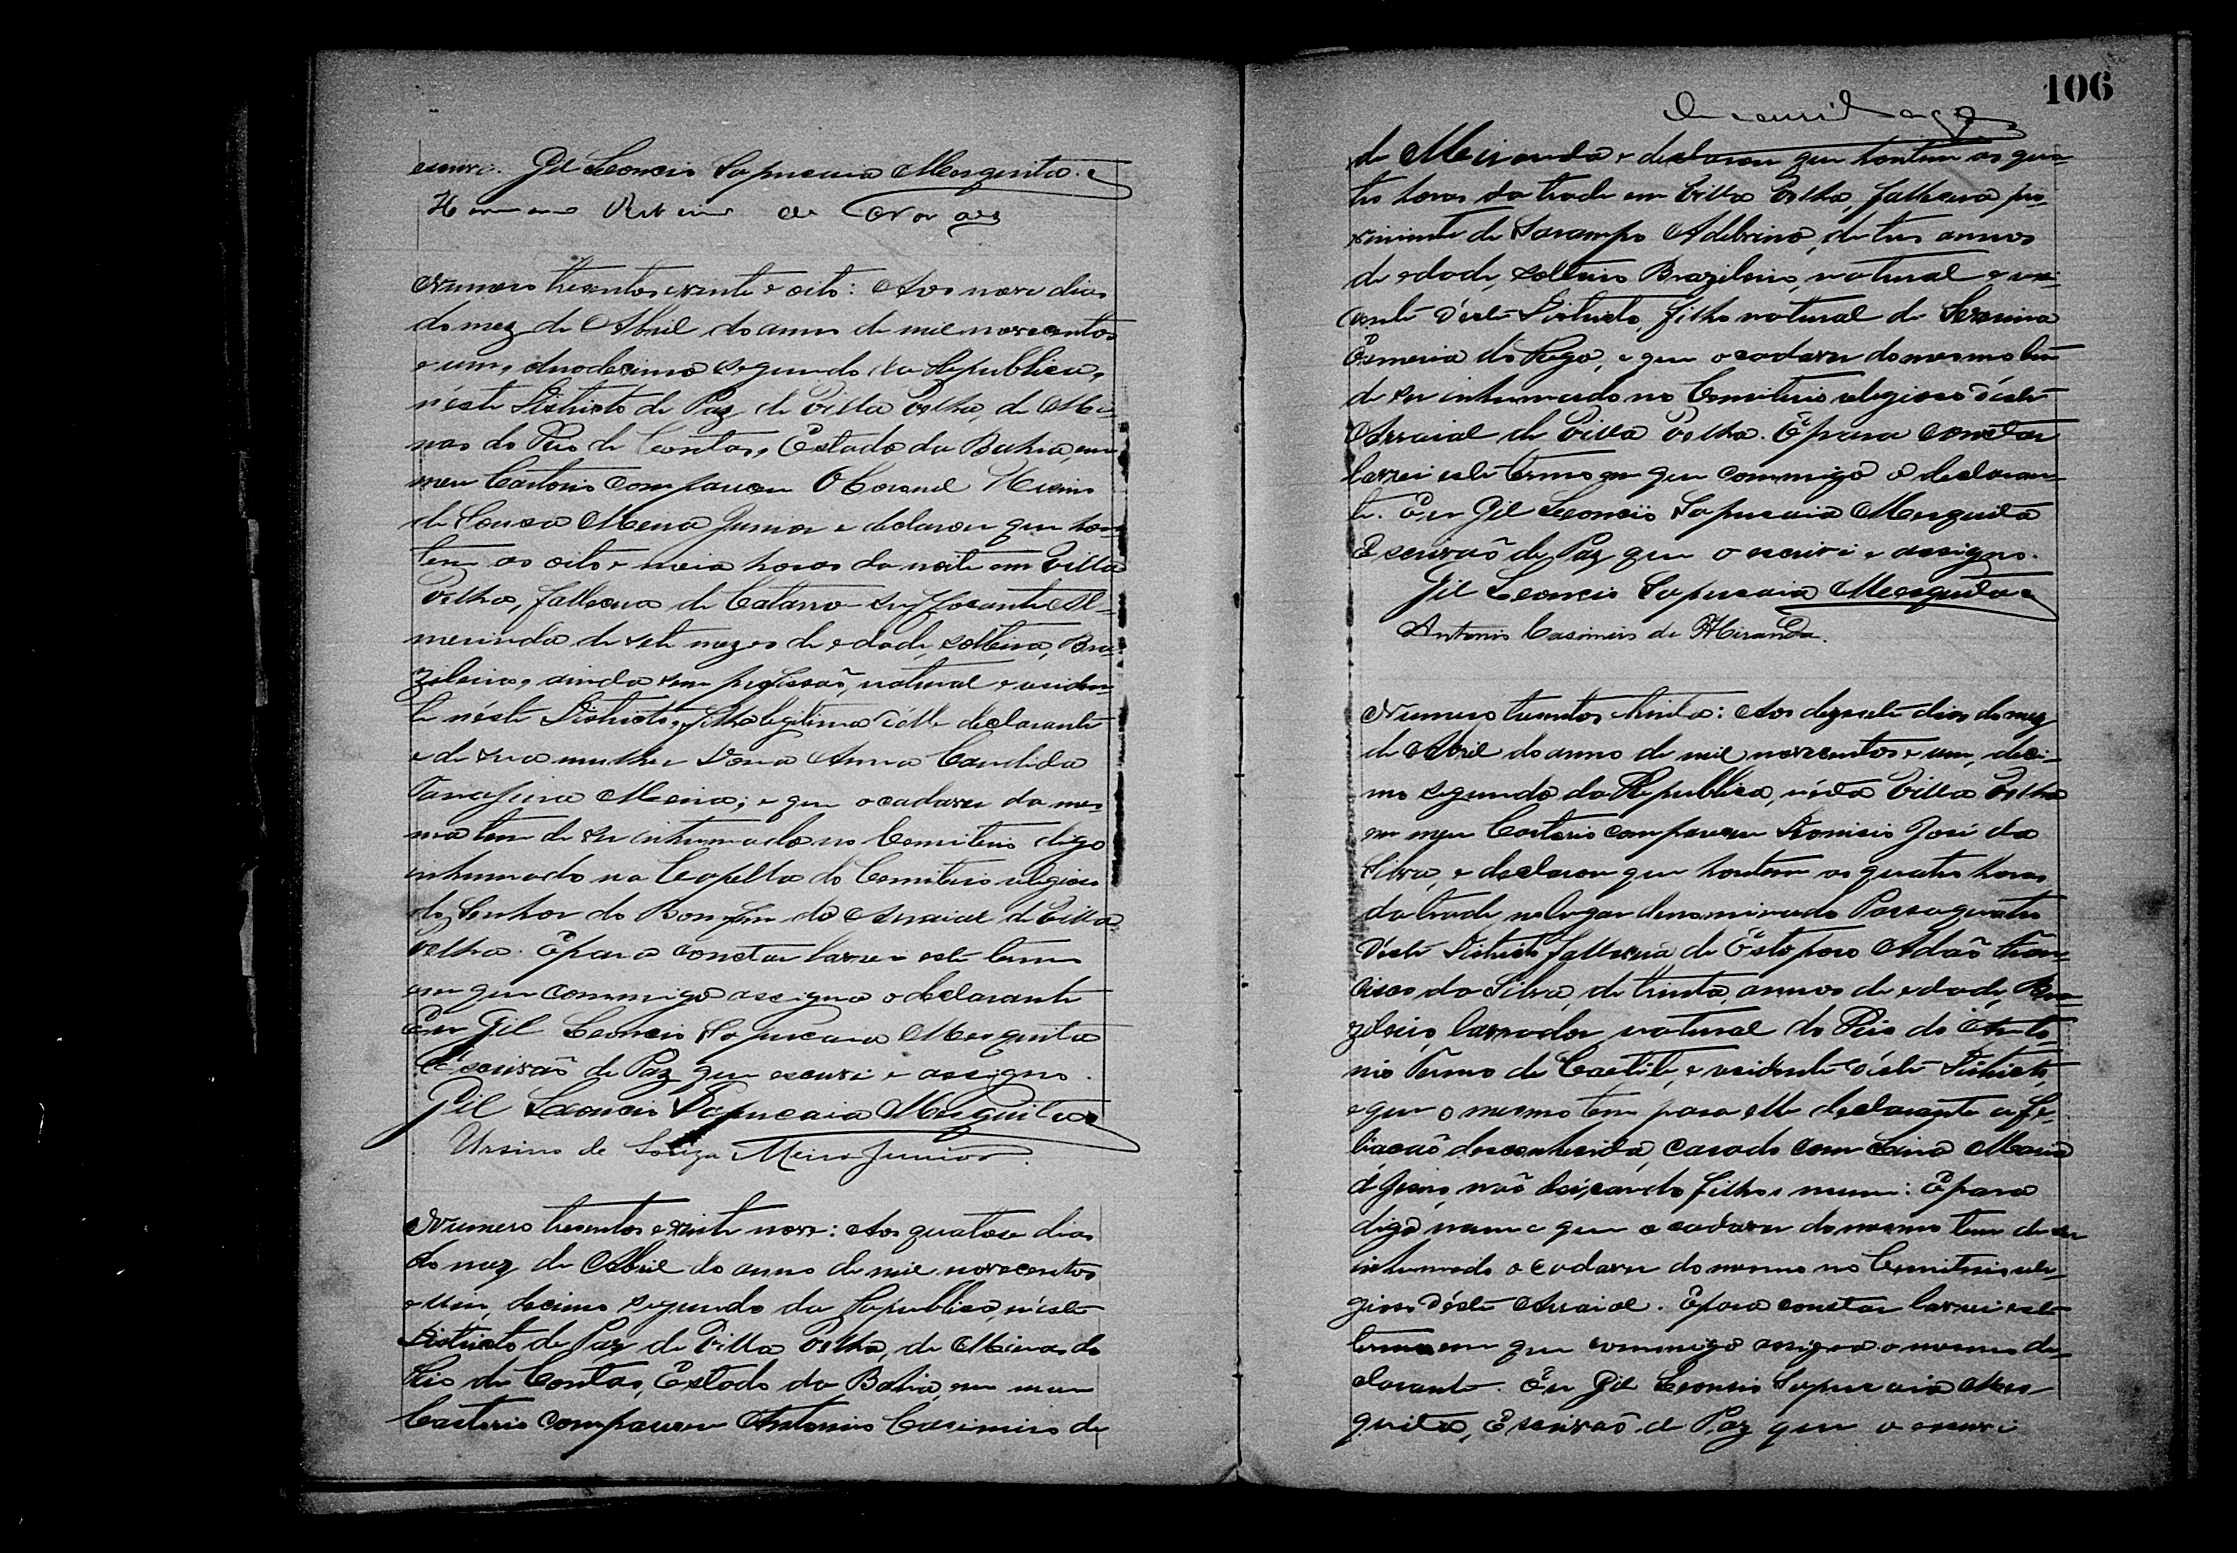 escrevi. Gil Leoncio Sapucaia Mesquita
de Moraes
Numero tresentos e vinte e oito: Aos nove dias
do mez de Abril do anno de mil novecentos
e um, duodecimo segundo da Republica,
n'este Districto de Paz de Villa Velha, de Mi-
nas do Rio de Contas, Estado da Bahia, em
meu Cartorio compareceu O Coronel Ursino
de Souza Meira Junior e declarou que hon-
tem as oito e meia horas da noite em Villa
Velha, falleceu de Catarro suffocante Al-
merinda de sete mezes de edade, solteira, Bra-
zileira, ainda sem profissão, natural e residen-
te n'este Districto, filha legitima d'elle declarante
e de sua mulher Dona Anna Candida
Tanajura Meira; e que o cadaver da mes-
ma tem de ser inhumado no Cemiterio digo
inhumado na Capella do Cemiterio religioso
do Senhor do Bom fim do Arraial de Villa
Velha. E para constar lavrei este termo
em que commigo assigna o declarante
Eu Gil Leoncio Sapucaia Mesquita
Escrivão de Paz que escrevi e assigno.
Gil Leoncio Sapucaia Mesquita
Ursino de Souza Meira Junior.
Numero tresentos e vinte nove: Aos quatose dias
do mez de Abril do anno de mil novecentos
e um, decimo segundo da Republica, n'este
Districto de Paz de Villa Velha, de Minas do
Rio de Contas, Estado da Bahia, em meu
Cartorio compareceu Antonio Casimiro de
106
de Meiranda e declarou que hontem as qua-
tro horas da trade em Villa Velha, falleceu pro-
viniente de Sarampo Adelvino, de tres annos
de edade, solteiro Brazileiro, natural e resi-
dente d'este Districto, filho natural de
do Rego, e que o cadaver do mesmo tem
de ser inhumado no Cemiterio religioso d'este
Arraial de Villa Velha. E para constar
lavrei este termo em que commigo o declaran-
te. Eu Gil Leoncio Sapucaia Mesquita
Escrivão de Paz que o escrivi e assigno.
Gil Leoncio Sapucaia Mesquita
Antonio Casimiro de Miranda.
Numero tresentos e trinta: Aos dezesete dias do mez
de Abril do anno de mil novecentos e um, deci-
mo segundo da Republica, n'esta Villa Velha
em meu Cartorio compareceu Dionisio José da
Silva, e declarou que hontem as quatro horas
da trade no lugar denominado Passaquatro
d'este Districto falleceu de Estoporo Adão Fran-
cisco da Silva, de trinta annos de edade, Bra-
zileiro, lavrador natural do Rio do Anto-
nio Termo de Caetité, e residente d'este Districto,
e que o mesmo tem para elle declarante a fi-
liacão desconhecida, casado com Maria
de Jesus, não deixando filhos : E para
digo e que o cadaver do mesmo tem de ser
inhumado o cadaver do mesmo no Cemiterio reli-
gioso d'este Arraial. E para constar lavrei este
termo em que commigo assigna o mesmo de-
clarante. Eu Gil Leoncio Sapucaia Mes-
quita, Escrivão de Paz que o escrevi